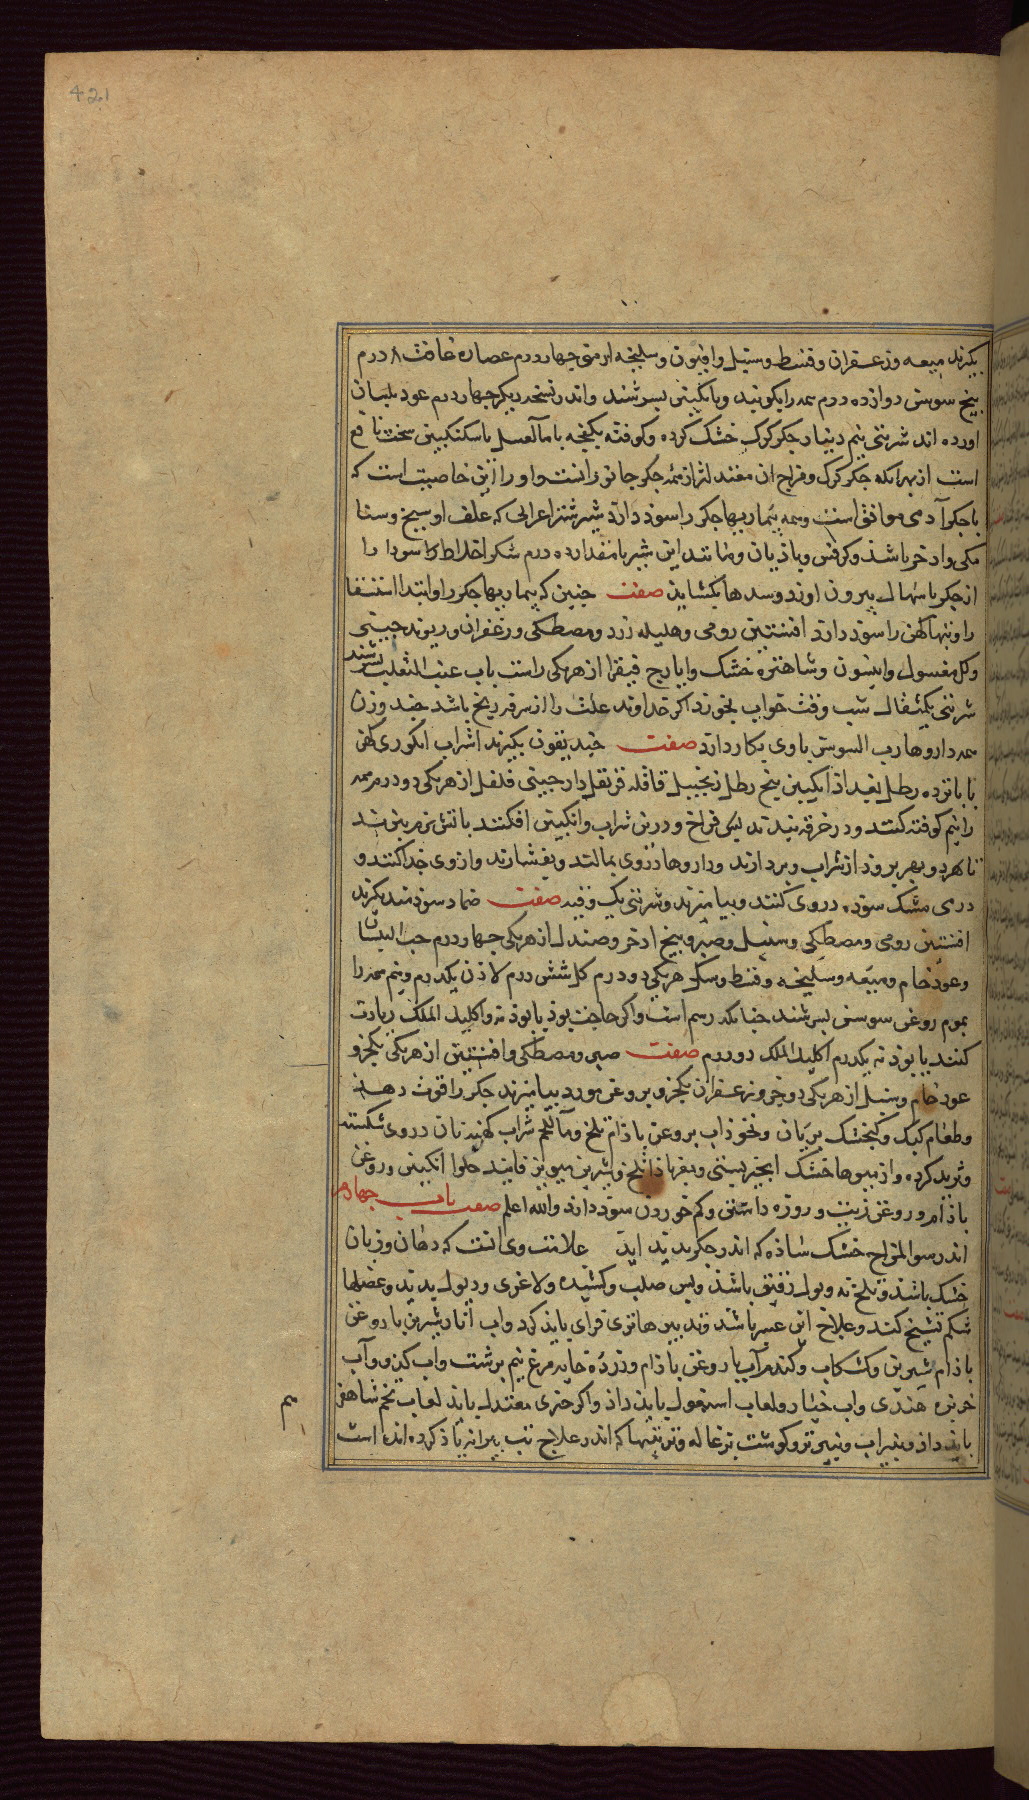 421
بکیرند میعه وزعفران وقسط وسنبل وافیون وسلیخه ازهر یکی چهاردرم عصاره غافث ۸ درم
بیخ سوس دوازده درم همه را بکوبند وبانکبین بسرشند واندر نسخه دیکر چهاردرم عود بلسان
اورده اند شربتی نیم دینار جکر کرک خشک کرده وکوفته یکیخه با مآ العسل یا سکنکبین سخت نافع
است ازبهر انکه جکر کرک ومزاج ان معتدل تر از همه جکر جانوران است و او را این خاصیت است که
با جکر آدمی موافق است وهمه بیماریها جکر را سوذ دارذ شیر شتر اعرابی که علف او شیح وسنا
مکی واذخر باشذ وکرفس وباذیان ومانند این شیر با مقدار ده درم شکر اخلاط سودا را
از جکر باسهال بیرون اورد وسدها بکشاید صفت حبی که بیماریها جکر را وابتدا استسقا
را وتبها کهن را سوذ دارذ افسنتین رومی وهلیله زرد ومصطکی وزعفران وریوند چینی
وکل مغسول وانیسون وشاهتره خشک وایارج فیقرا از هریکی راست باب عنب الثعلب بسرشند
شربتی یکمثقال شب وقت خواب بخورد اکر خداوند علت را سرفه رنج باشد چند وزن
همه داروها رب السوس باوی بکار دارد صفت خندیقون بکیرند شراب انکوری کهن
پانزده رطل انکبین پنج رطل زنجبیل قاقله قرنفل دارچینی فلفل از هریکی دودرم همه
را نیم کوفته کنند ودر خرقه بندند لیکن فراخ ودرین شراب وانکبین افکنند باتش نرم بپزند
تا بهره برود از شراب وبردارند وداروها دروی بمالند وبفشارند وازوی جدا کنند و
درمی مشک سوده دروی کنند وبیامیزند وشربتی یک وقیه صفت ضماد سوذمند بکیرند
افسنتین رومی ومصطکی وسنبل وصبر وبیخ اذخر وصندل از هریکی چهاردرم حب البلسان
وعود خام ومیعه وسلیخه وقسط وسک هریکی دودرم کل شش درم لاذن یکدرم ونیم همه را
بموم روغن سوسن بسرشند چنانکه رسم است واکر حاجت بوذ بابونه واکلیل الملک زیادت
کنند بابونه یکدرم اکلیل الملک دودرم صفت صبر ومصطکی وافسنتین از هریکی یکجزو
عود خام وسنبل از هریکی دوجزو زعفران یکجزو بروغن مورد بیامیزند جکر را قوت دهد
وطعام کبک وکنجشک بریان ونخوذاب بروغن باذام تلخ وماالحم شراب کهن نان دروی شکسته
وثرید کرده واز میوها خشک انجیر وپسته ومغز باذام تلخ وشیرین مویز قانید حلوا انکبین وروغن
باذام وروغن زیت وروزه داشتن وکم خوردن سوذ دارذ والله اعلم صفت باب چهارم
اندر سوالمزاج خشک ساذه که اندر جکر پدید اید علامت وی انست که دهان وزبان
خشک باشذ وتلخ نه وبول رقیق باشذ ونبض صلب وکشیده ولاغری وذبول پدید اید وعضلها
شکم تشنج کند وعلاج این عسیر باشذ وتدبیرها تری فزای باید کرد واب انار شیرین با روغن
باذام شیرین وکشکاب وکندم آب با روغن باذام وزرده خایه مرغ نیم برشت واب کدو وآب
خربزه هندی واب خیار ولعاب اسبغول باید داذ واکر حری معتدل باید لعاب تخم شاهفرم
باید داذ وپنیراب وپنیر تر وکوشت بزغاله وترتیبها که اندر علاج تب پیرانه یاذ کرده انذ است